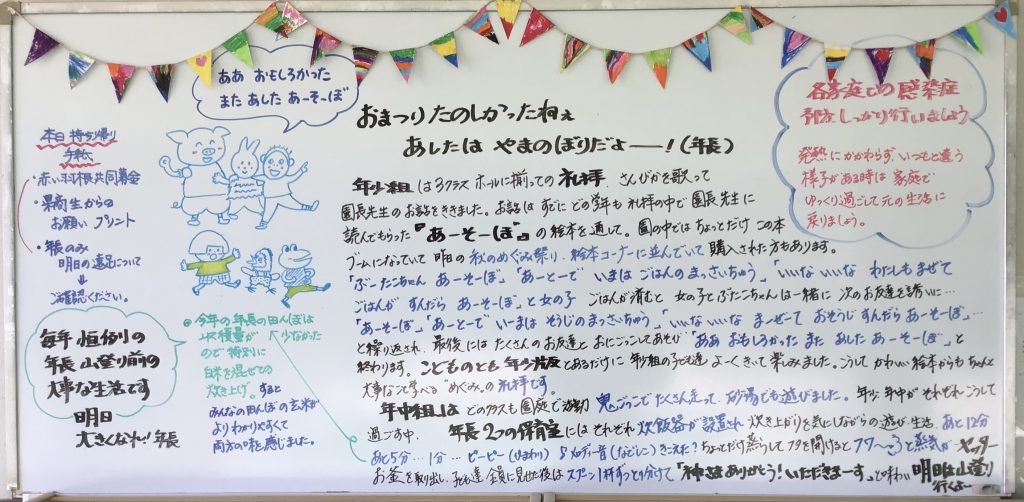 ああ おもしろかった
また あした あーそーぼ
おまつり たのしかったねぇ
あしたは やまのぼりだよ――!(年長)
各家庭での感染症
予防しっかり行いましょう
発熱にかかわらず、いつもと違う
様子がある時は 家庭で
ゆっくり過ごして元の生活に
戻りましょう。
本日 持ち帰り
手紙
・赤い羽根共同募金
・果商生からの
お願い プリント
・年長のみ
明日の遠足について
ご確認ください。
毎年 恒例の
年長 山登り前の
大事な生活です
明日
大きくなれ!!年長
◎今年の年長の田んぼは
収穫量が少なかった
ので 特別に
白米を混ぜての
炊き上げ。すると
みんなの田んぼの玄米が
よりわかりやすくて
両方の味を感じました。
年少組は3クラス ホールに揃っての礼拝。さんびかを歌って
園長先生のお話をききました。お話は すでに どの学年も 礼拝の中で 園長先生に
読んでもらった『あーそーぼ』の絵本を通して。園の中では ちょっとだけ この本
ブームになっていて 昨日の 秋のめぐみ祭り・絵本コーナーに並んでいて 購入された方もあります。
「ぶーたこちゃん あーそーぼ」「あーとーで いまは ごはんの まっさいちゅう」「いいな いいな わたしも まぜて
ごはんが すんだら あーそーぼ」と女の子 ごはんが済むと 女の子とぶたこちゃんは一緒に 次のお友達を誘いに…
「あーそーぼ」「あーとーで いーまは そうじの まっさいちゅう」「いいな いいな まーぜーて おそうじ すんだら あーそーぼ」…
と繰り返され 最後には たくさんのお友達と おにごっこして あそび「ああ おもしろかった また あした あーそーぼ」と
終わります。こどものとも 年少版 とあるだけに 年少組の子ども達 よーくきいて 楽しみました。こうして かわいい絵本からも ちゃんと
大事なこと学べる“めぐみ”の礼拝です。
年中組は どのクラスも園庭で活動 鬼ごっこで たくさん走って 砂場でも遊びました。年少 年中が それぞれ こうして
過ごす中、年長2つの保育室には それぞれ 炊飯器が設置され 炊き上がりを気にしながらの遊び・生活。あと12分
あと5分…1分… ピーピー(ひまわり) ♪メロディー音(なでしこ)きこえた? ちょっとだけ蒸らして フタを開けると フワ〜〜っと蒸気が ヤッター
お釜を取り出し 子ども達 全員に見せた後は スプーン1杯ずつとり分けて「神さまありがとう!いただきまーす」と味わい 明日は山登り
行くよー